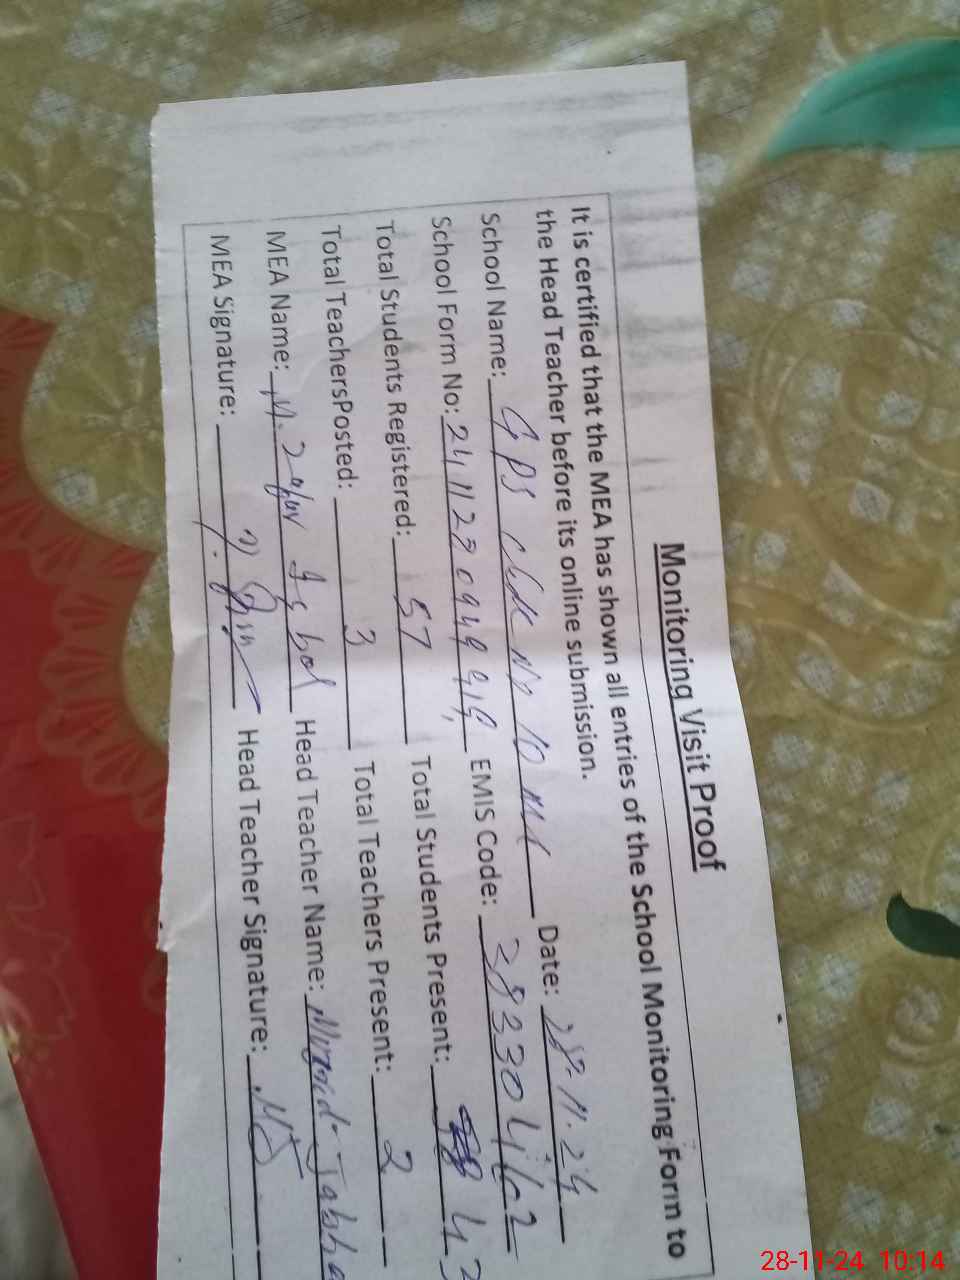 Monitoring Visit Proof
It is certified that the MEA has shown all entries of the School Monitoring Form to
the Head Teacher before its online submission.
School Name: GPS No 10 Date: 28.11.24
School Form No: EMIS Code:
Total Students Registered: 57 Total Students Present: 43
Total TeachersPosted: 3 Total Teachers Present: 2
MEA Name: M. Head Teacher Name:
MEA Signature: Head Teacher Signature: MJ
28-11-24 10:14